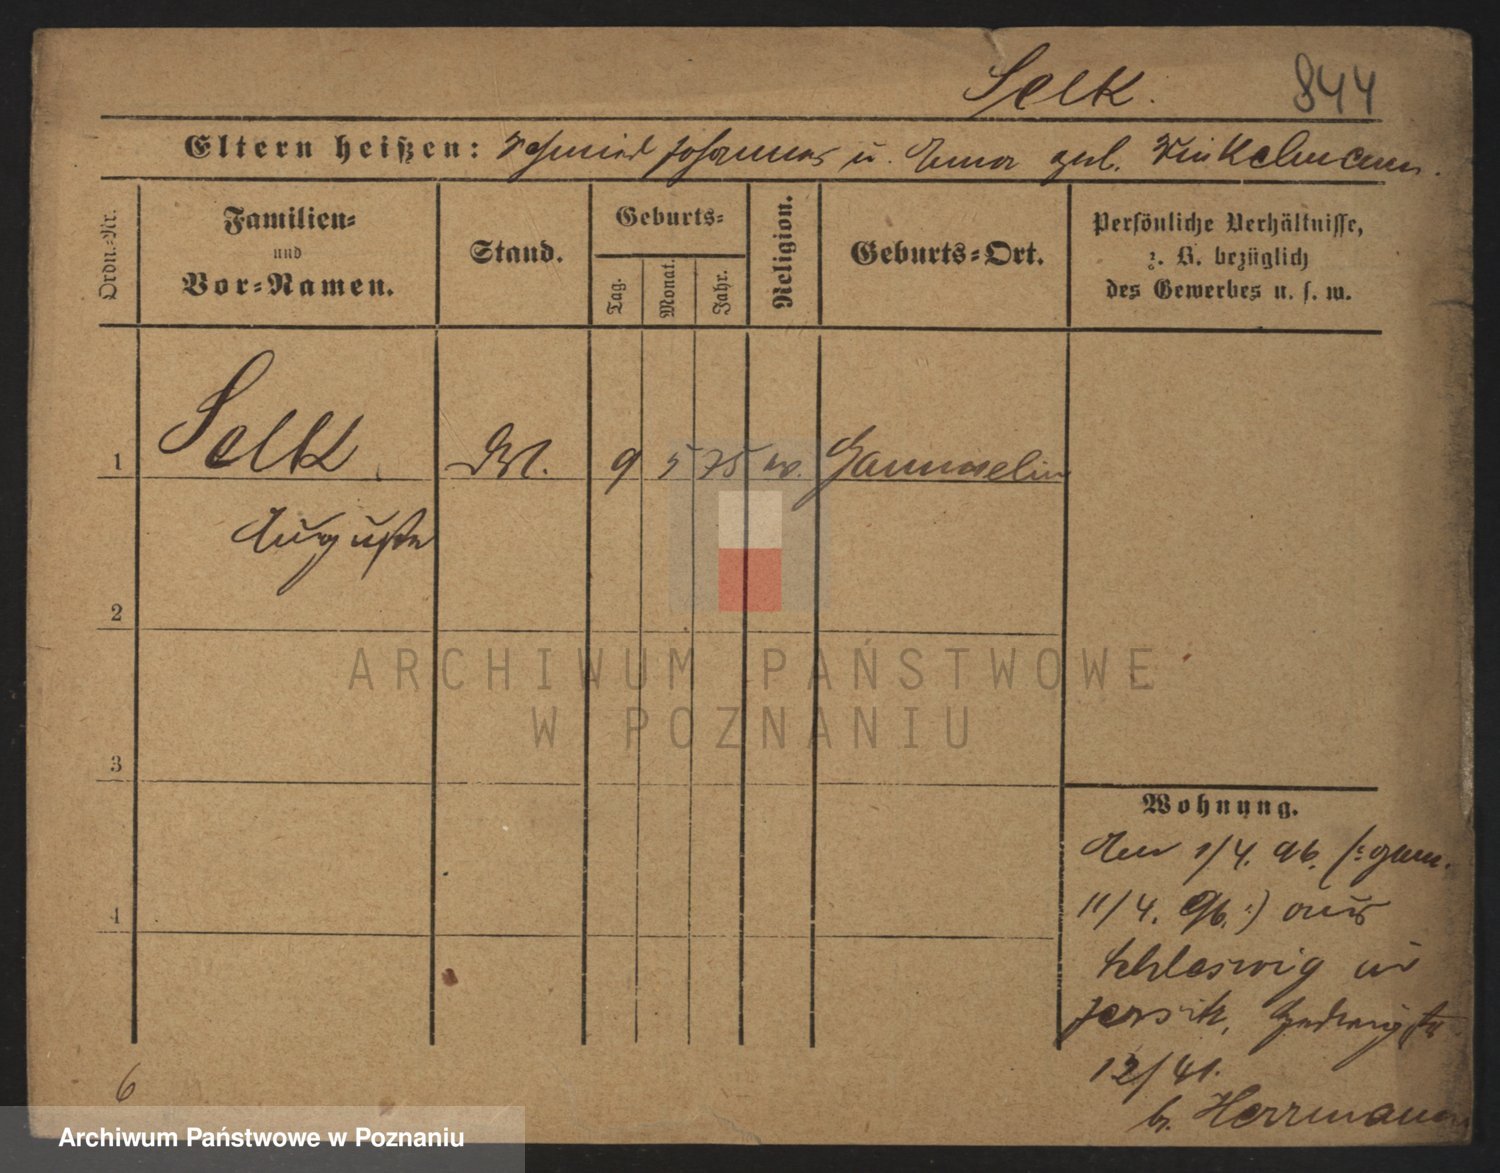 Selk.
844
Eltern heißen: Schmied Johannes u. Anna geb. Winkelmann.
Ordn.-Nr.
Familien-
und
Vor-Namen.
Stand.
Geburts-
Tag.
Monat.
Jahr.
Religion.
Geburts-Ort.
Persönliche Verhältnisse,
z. B. bezüglich
des Gewerbes u. s. w.
1 Selk 9 5 75 ev.
Auguste
2
3
4
Wohnung.
Am 1/4. 96. (: gem.
11/4. 96. :) aus
Schleswig in
Jersitz, Hedwigstr.
12/41.
b. Herrmann
6
ARCHIWUM PAŃSTWOWE
W POZNANIU
Archiwum Państwowe w Poznaniu